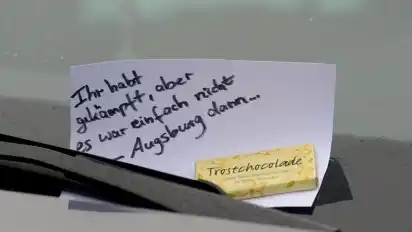 Ihr habt
gekämpft, aber
es war einfach nicht
– Augsburg dann...
Trostchocolade